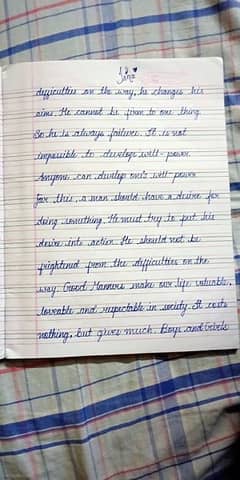 difficulties on the way, he changes his
aims. He cannot be firm to one thing
So he is always failure. It is not
impossible to develope will-power.
Anyone can develop one's will-power
for this, a man should have a desire for
doing something. He must try to put his
desire into action. He should not be
frightened from the difficulties on the
way. Good Manners make our life valuable,
loveable and respectable in society. It costs
nothing, but gives much. Boys and Girls